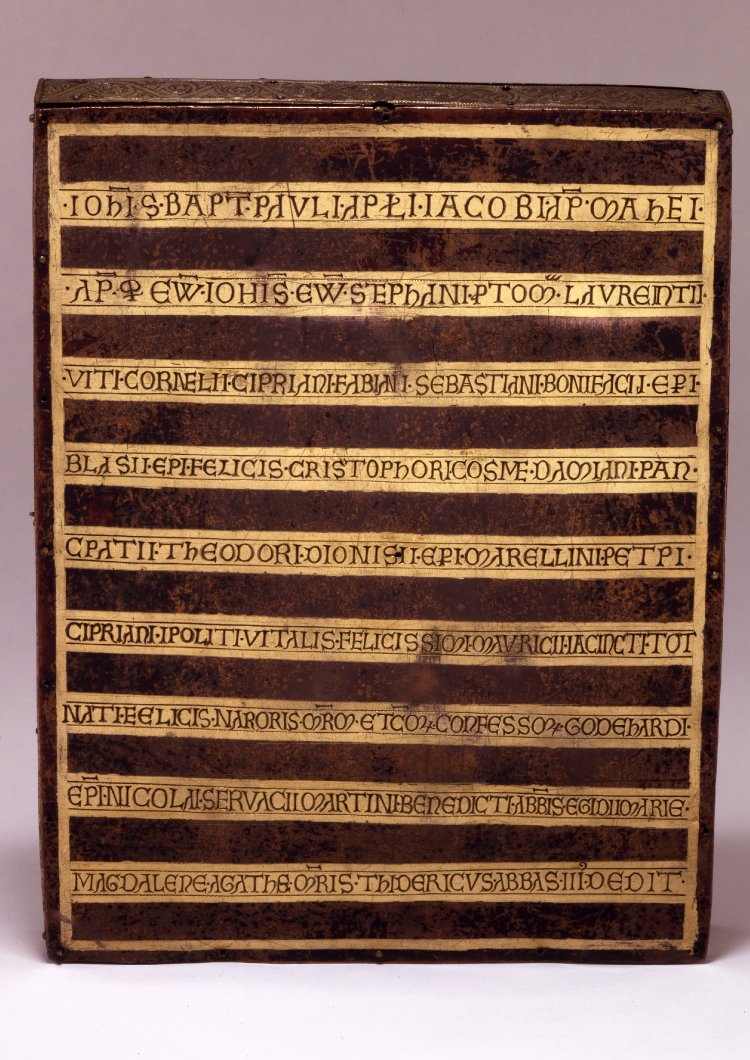 ·IOHIS·BAPT·PAVLI·APŁI·IACOBI·AP̄·MAHEI·
·AP̄· EW̄·IOHIS·EW̄·STEPHANI·PTOM̄·LAVRENTII·
·VITI·CORNELII·CIPRIANI·FABIANI·SEBASTIANI·BONIFACII·EPI·
BLASII·EPI·FELICIS·CRISTOPHORI·COSME·DAMIANI·PAN·
CPATII·THEODORI·DIONISII·EPI·MARELLINI·PETPI·
CIPRIANI·IPOLITI·VITALIS·FELICISSIMI·MAVRICII·IACINCTI·TOT
NATI·FELICIS·NARORIS·M̄RM·ET·CONFESSOꝜ·GODEHARDI·
EP̄I·NICOLAI·SERVACII·MARTINI·BENEDICTI·ABB̄IS·EGIDII·MARIE·
MAGDALENE·AGATHE·M̄RIS·THIDERICVS·ABBAS·III·DEDIT